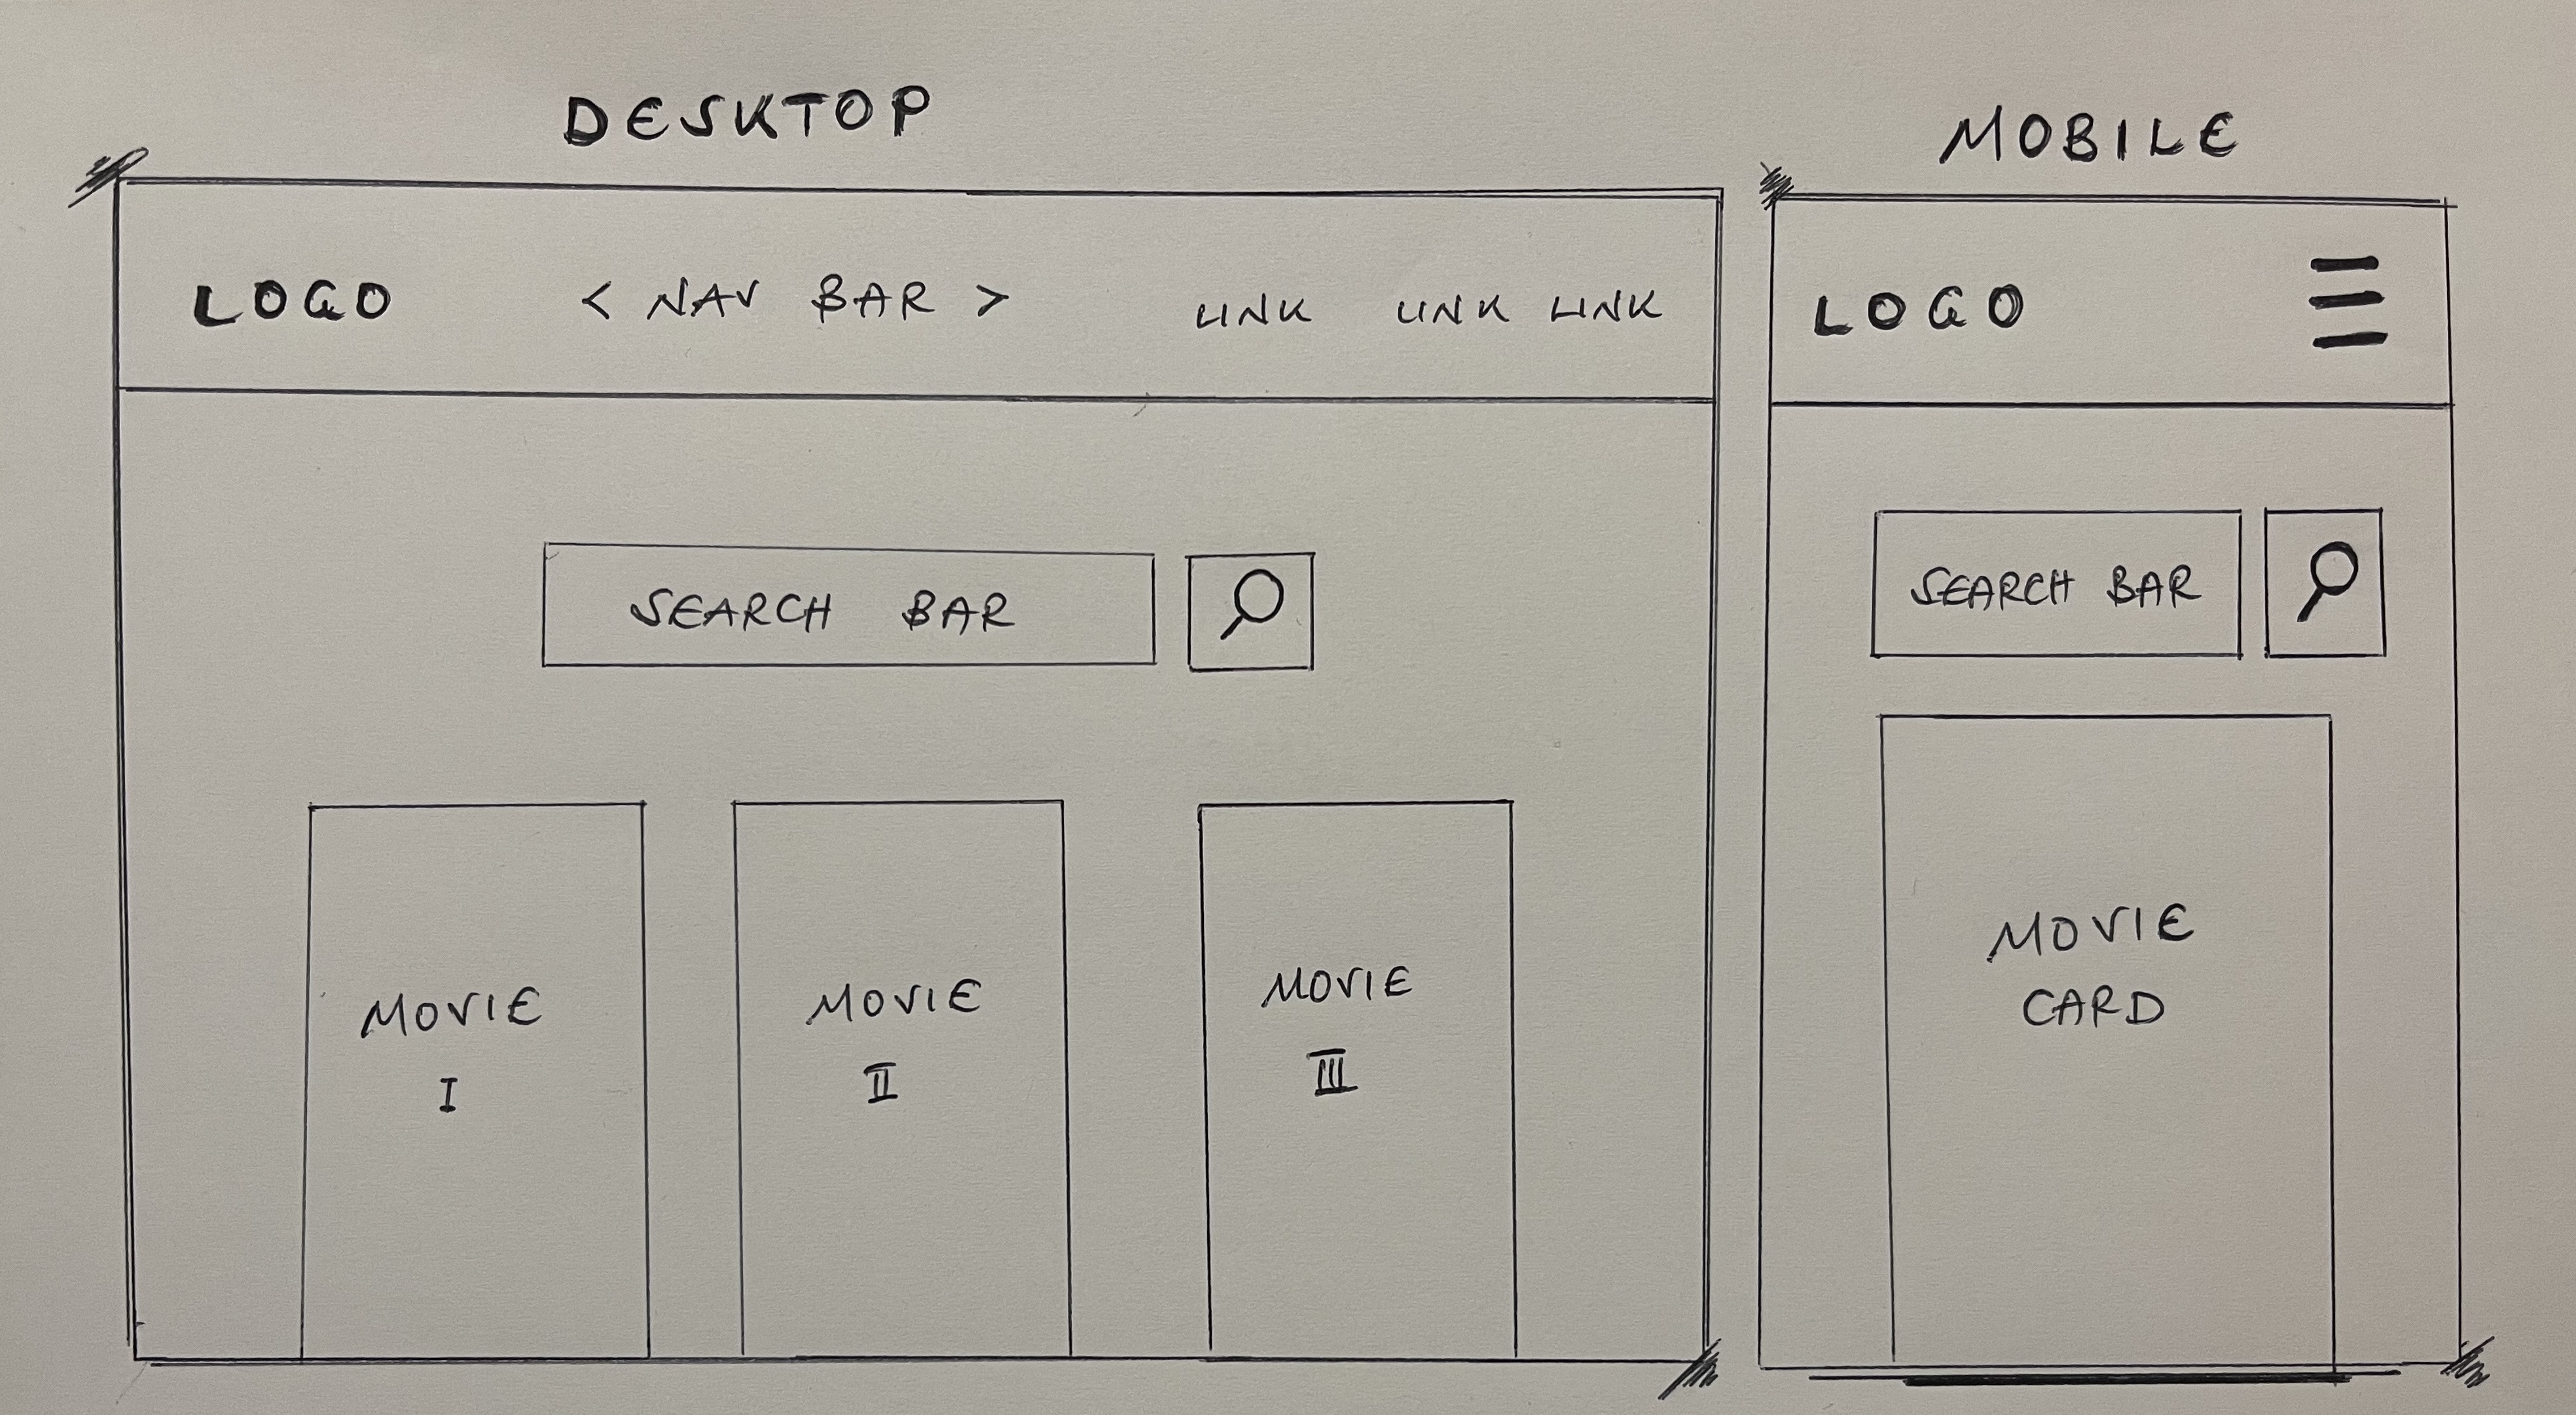 DESKTOP
LOGO < NAV BAR > LINK LINK LINK
SEARCH BAR
MOVIE
I
MOVIE
II
MOVIE
III
MOBILE
LOGO
SEARCH BAR
MOVIE
CARD